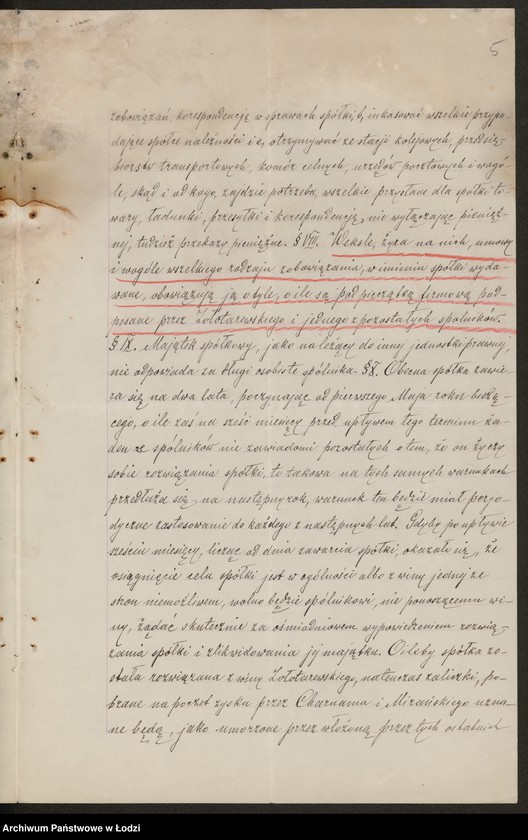 5
zobowiązań, korespondencję w sprawach spółki, b, inkasować wszelkie przypa-
dające spółce należności i c, otrzymywać ze stacji kolejowych, przedsię-
biorstw transportowych, komór celnych, urzędów pocztowych i wogó-
le, skąd i od kogo, zajdzie potrzeba, wszelkie przysłane dla spółki to-
wary, ładunki, przesyłki i korespondencję, nie wyłączając pienięż-
nej, tudzież przekazy pieniężne. § VIII. Weksle, żyra na nich, umowy
i wogóle wszelkiego rodzaju zobowiązania, w imieniu spółki wyda-
wane, obowiązują ją o tyle, o ile są pod pieczątką firmową pod-
pisane przez Zołotarewskiego i jednego z pozostałych spólników.
§ IX. Majątek spółkowy, jako należący do innej jednostki prawnej,
nie odpowiada za długi osobiste spólnika. § X. Obecna spółka zawie-
ra się na dwa lata, poczynając od pierwszego Maja roku bieżą-
cego, o ile zaś na sześć miesięcy przed upływem tego terminu ża-
den ze spólników nie zawiadomi pozostałych o tem, że on życzy
sobie rozwiązania spółki, to takowa na tych samych warunkach
przedłuża się na następny rok, warunek ten będzie miał perjo-
dyczne zastosowanie do każdego z następnych lat. Gdyby po upływie
sześciu miesięcy, licząc od dnia zawarcia spółki, okazało się, że
osiągnięcie celu spółki jest w ogólności albo z winy jednej ze
stron niemożliwem, wolno będzie spólnikowi, nie ponoszącemu wi-
ny, żądać skutecznie za ośmiodniowem wypowiedzeniem rozwią-
zania spółki i zlikwidowania jej majątku. O ileby spółka zo-
stała rozwiązana z winy Zołotarewskiego, natenczas zaliczki, po-
brane na poczet zysku przez Charnama i Mizańskiego uzna-
ne będą, jako umorzone przez włożoną przez tych ostatnich
Archiwum Państwowe w Łodzi